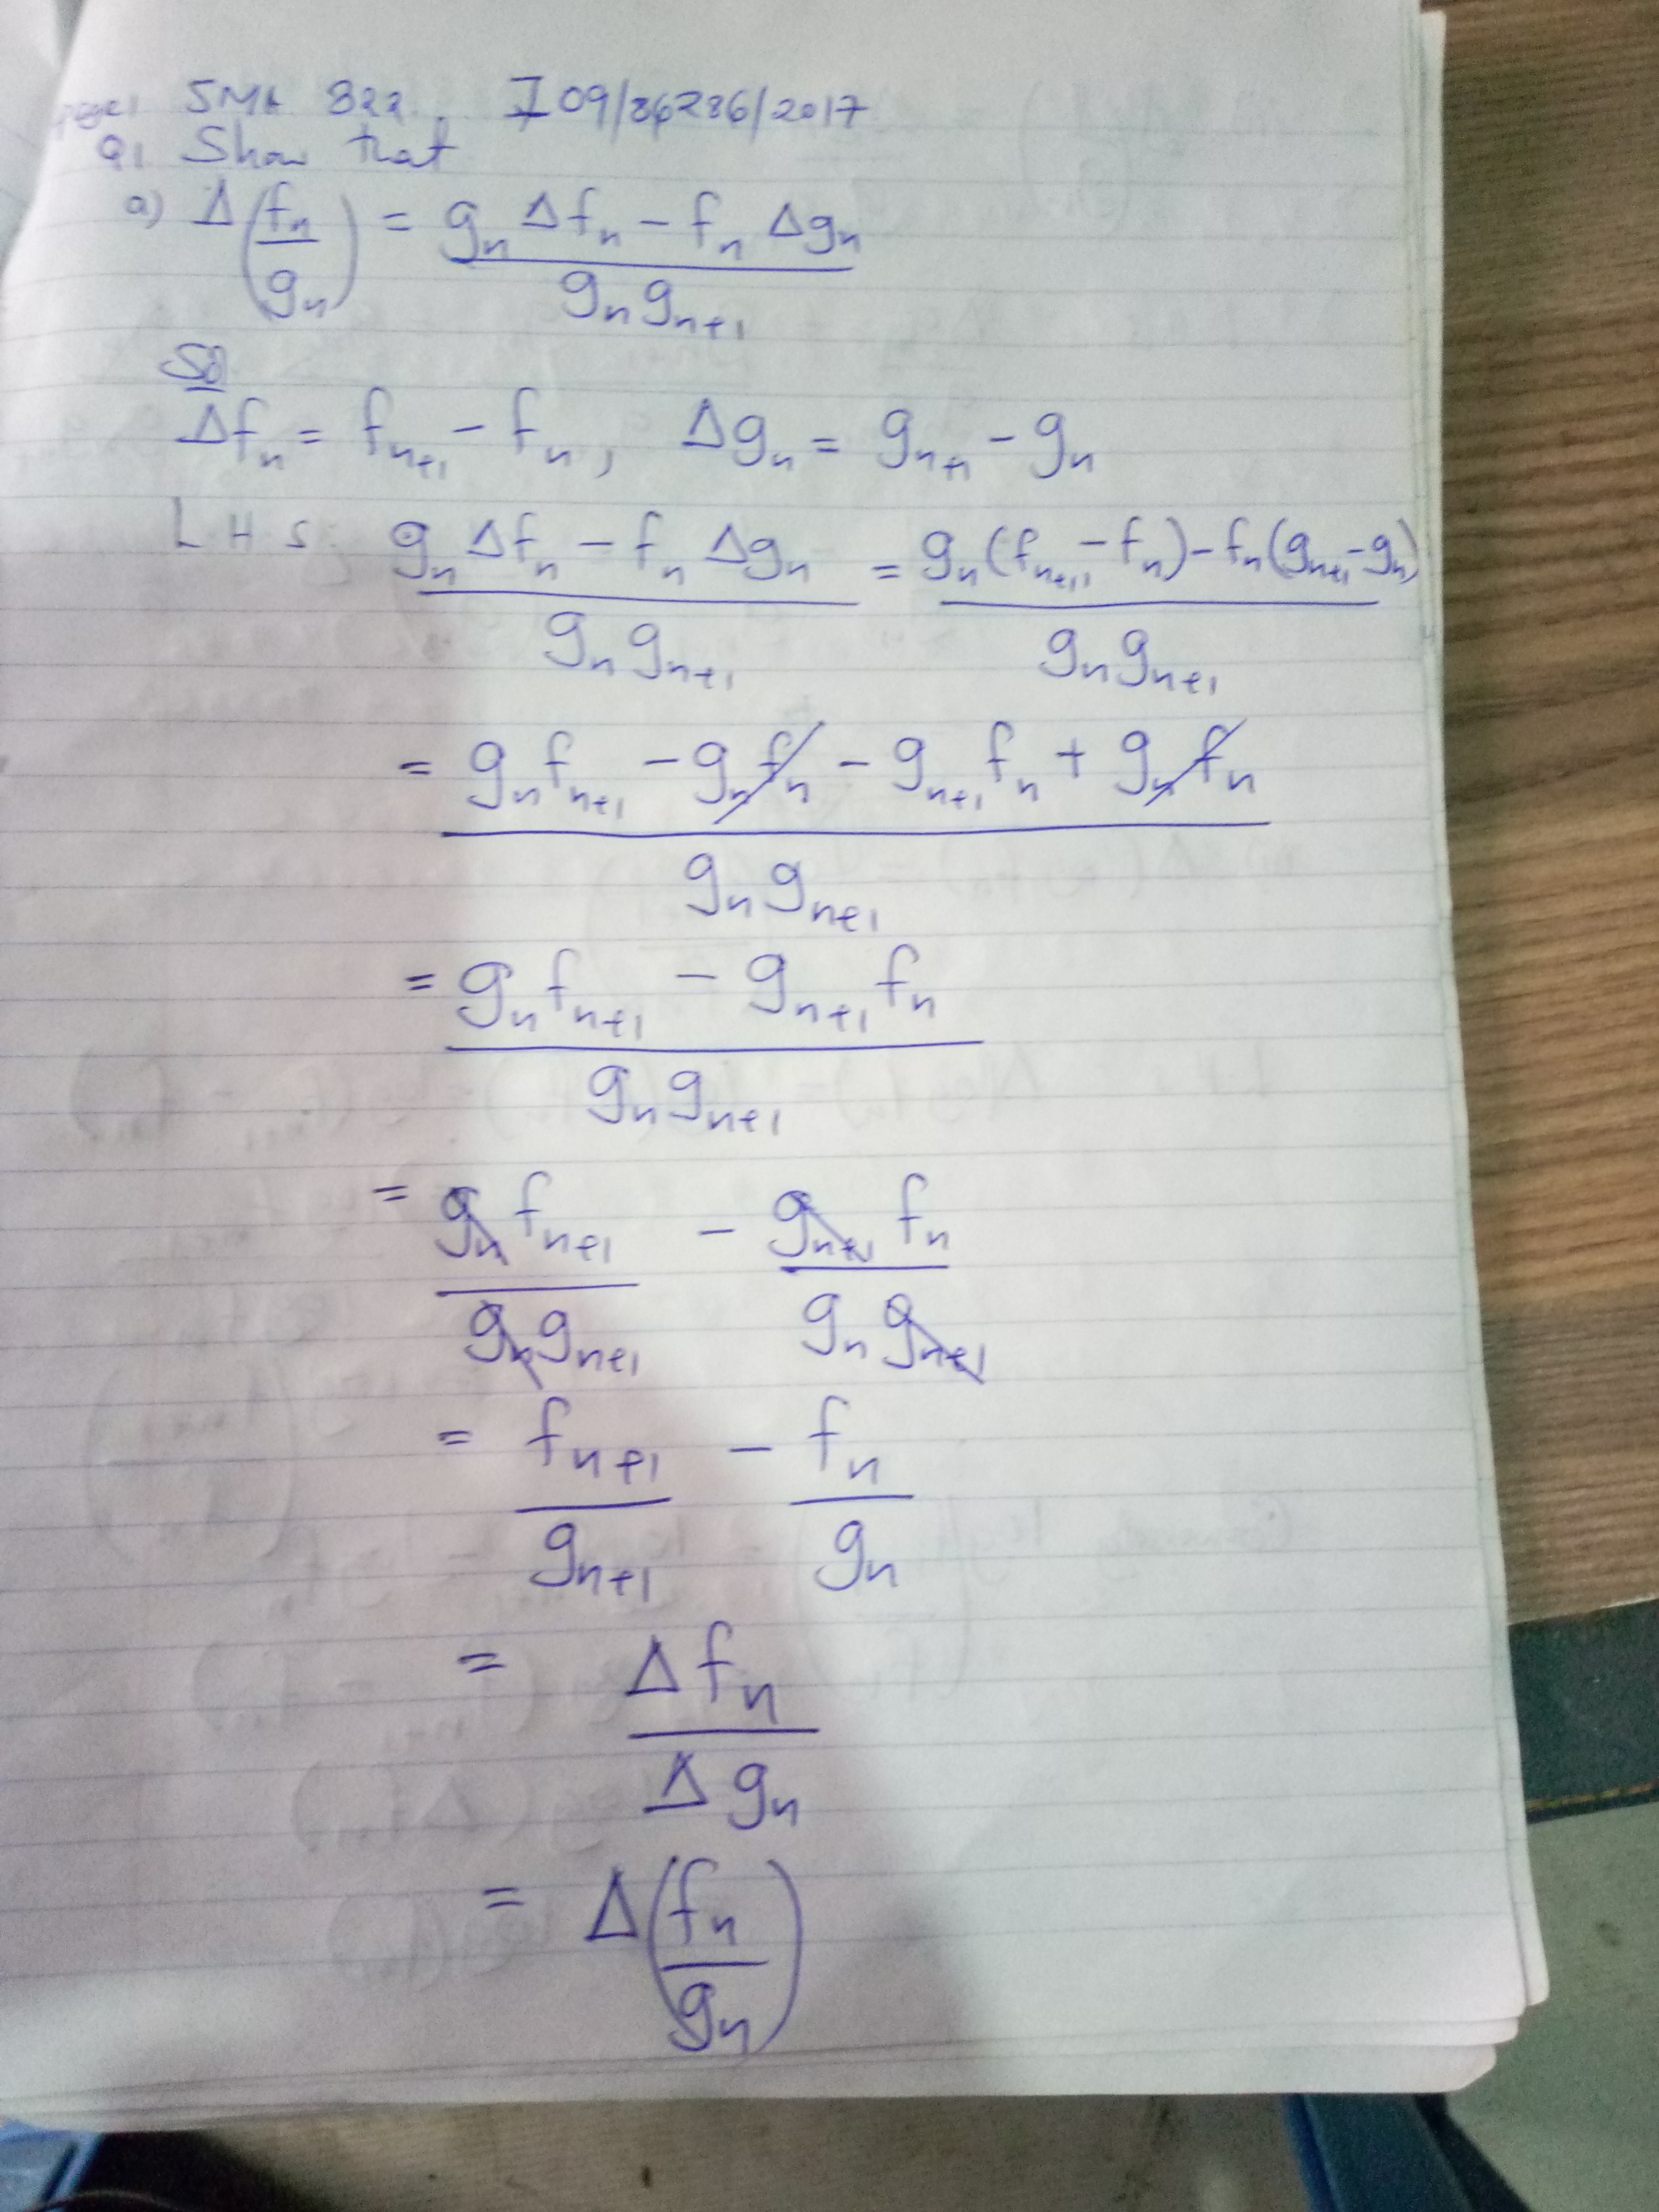 page 1 SMA 322 I09/86286/2017
Q1 Show that
a) Δ(fₙ/gₙ) = (gₙ Δfₙ − fₙ Δgₙ)/(gₙ gₙ₊₁)
Sol
Δfₙ = fₙ₊₁ − fₙ, Δgₙ = gₙ₊₁ − gₙ
LHS: (gₙ Δfₙ − fₙ Δgₙ)/(gₙ gₙ₊₁) = (gₙ(fₙ₊₁ − fₙ) − fₙ(gₙ₊₁ − gₙ))/(gₙ gₙ₊₁)
= (gₙ fₙ₊₁ − gₙ fₙ − gₙ₊₁ fₙ + gₙ fₙ)/(gₙ gₙ₊₁)
= (gₙ fₙ₊₁ − gₙ₊₁ fₙ)/(gₙ gₙ₊₁)
= (gₙ fₙ₊₁)/(gₙ gₙ₊₁) − (gₙ₊₁ fₙ)/(gₙ gₙ₊₁)
= fₙ₊₁/gₙ₊₁ − fₙ/gₙ
= Δfₙ/Δgₙ
= Δ(fₙ/gₙ)